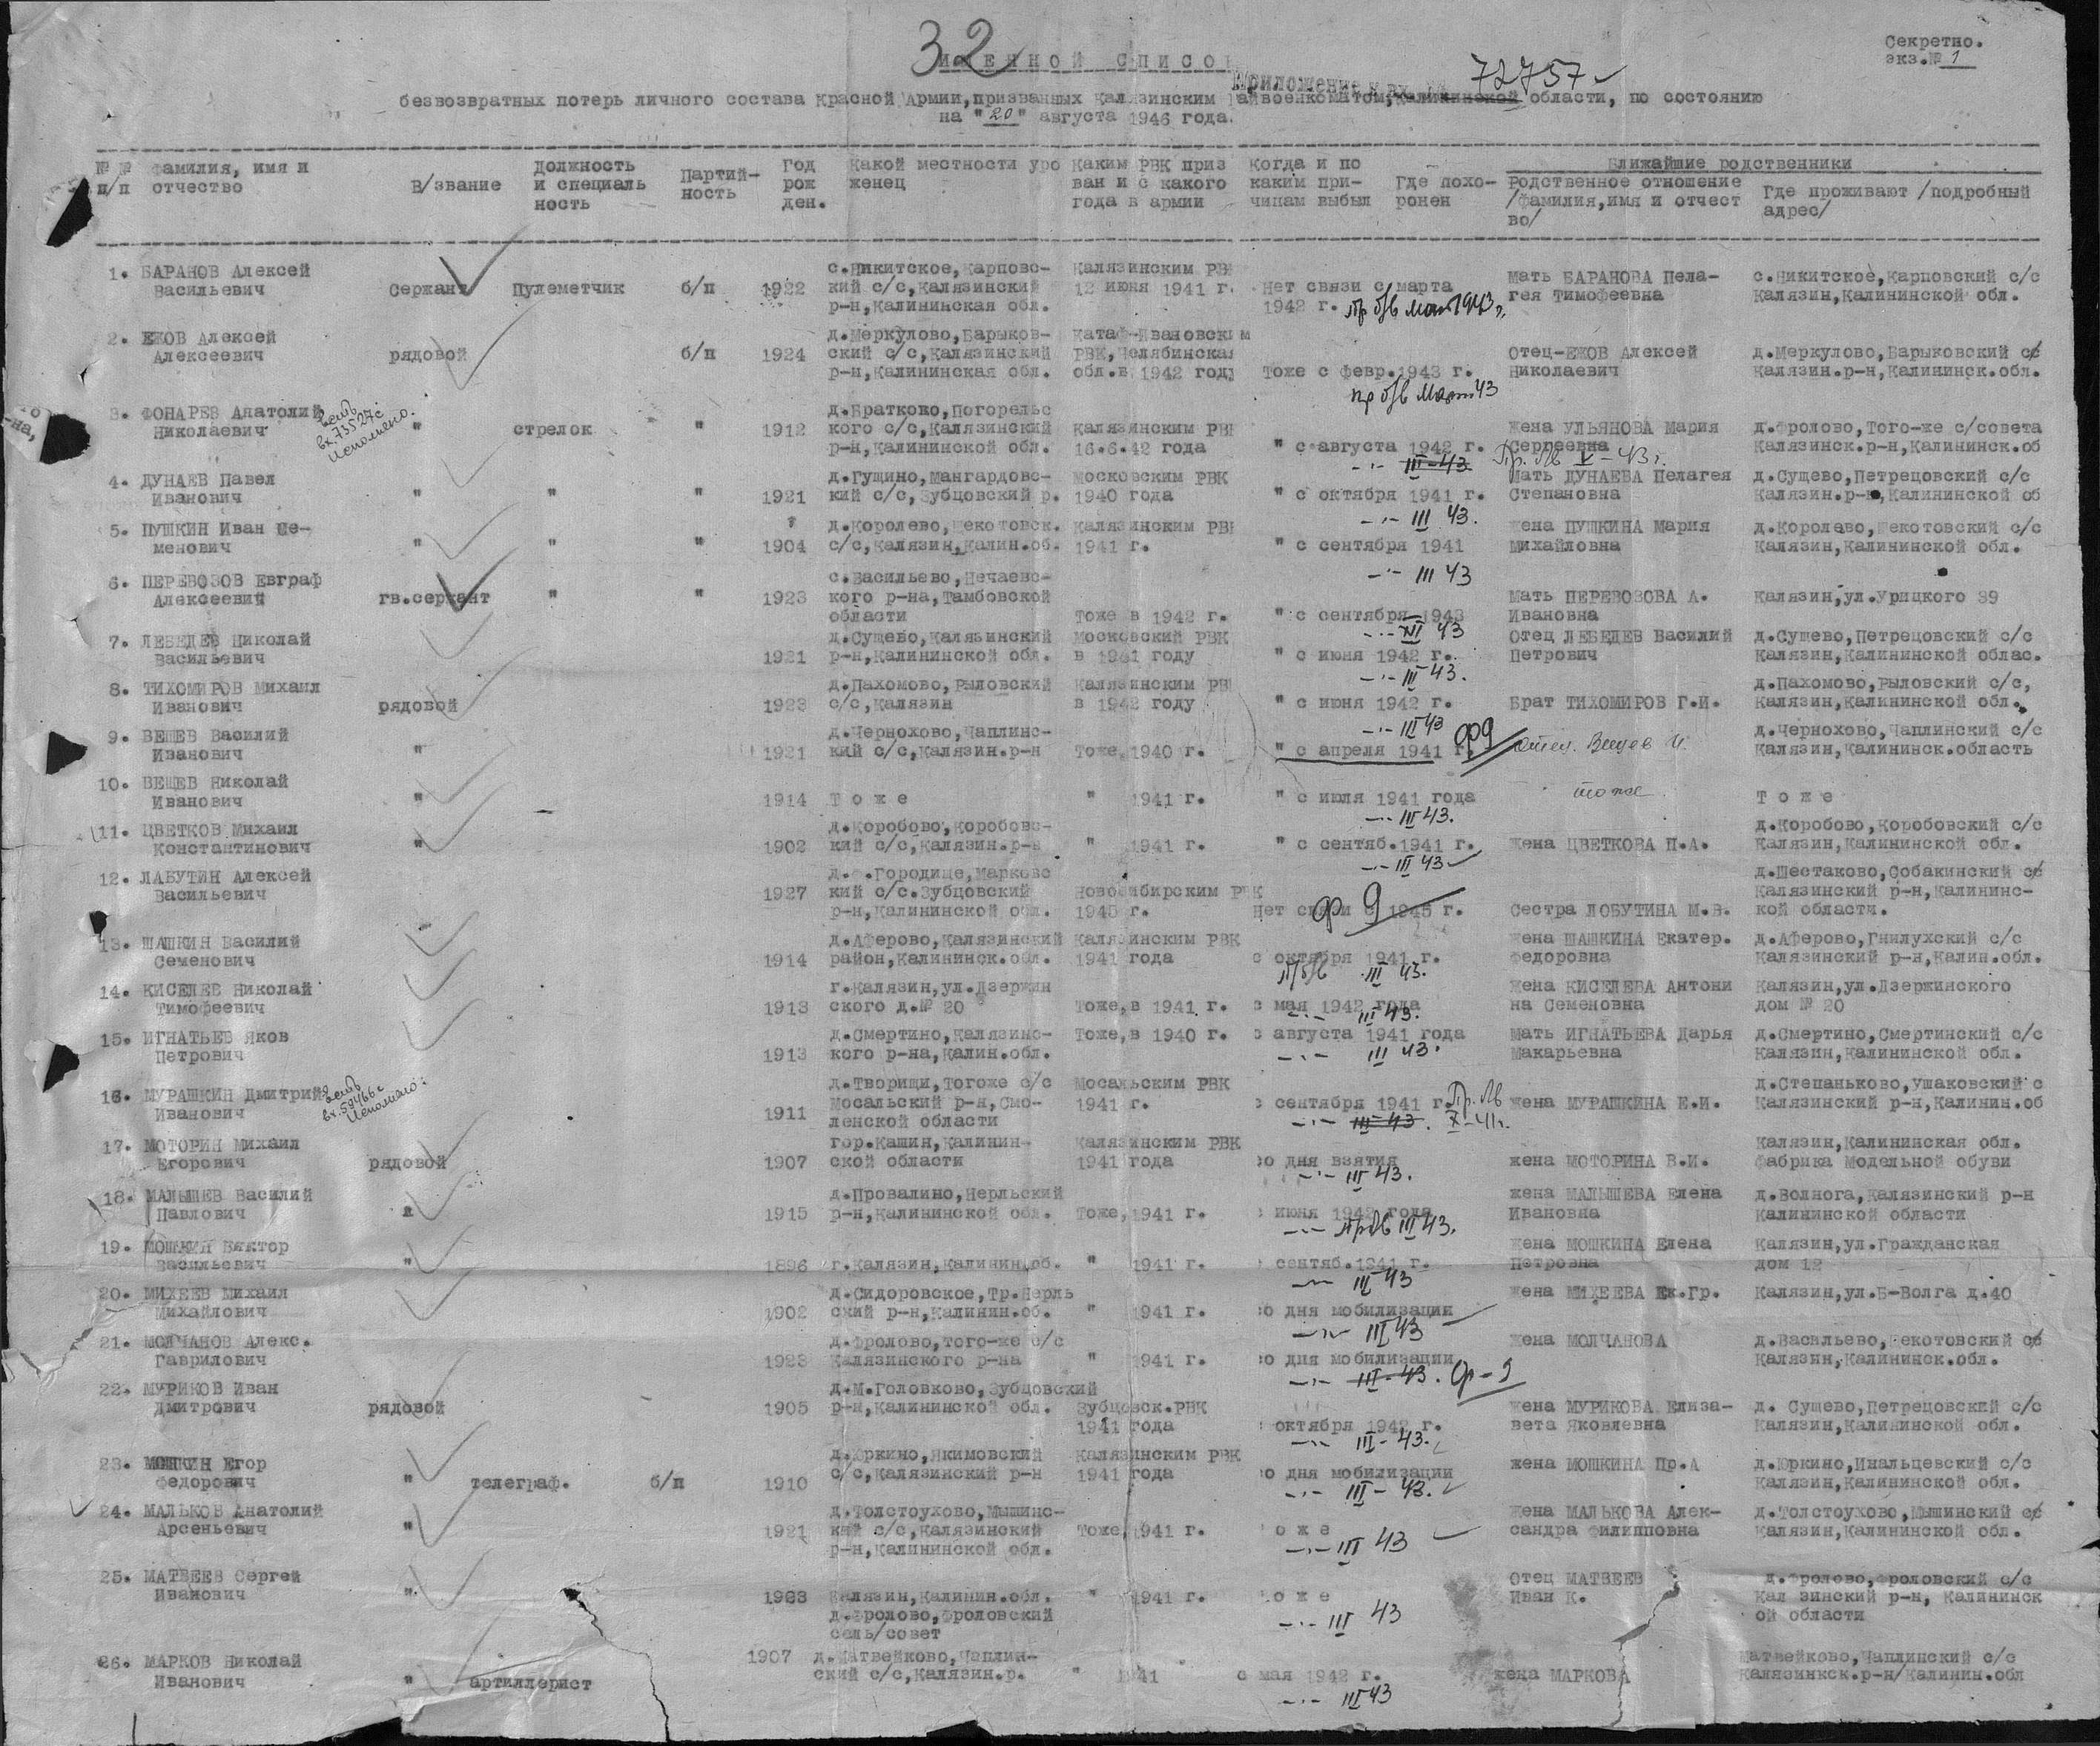 32
Секретно.
экз.№ 1
ИМЕННОЙ СПИСОК
Приложение к вх. 72757
безвозвратных потерь личного состава Красной Армии, призванных Калязинским Райвоенкоматом, Калининской области, по состоянию
на "20" августа 1946 года.
№ № п/п
Фамилия, имя и отчество
В/звание
Должность и специаль ность
Партий- ность
Год рож ден.
Какой местности уро женец
Каким РВК приз ван и с какого года в армии
Когда и по каким при- чинам выбыл
Где похо- ронен
Ближайшие родственники
Родственное отношение /фамилия,имя и отчест во/
Где проживают /подробный адрес/
1. БАРАНОВ Алексей Васильевич
Сержант Пулеметчик б/п 1922
с.Никитское,Карповс- кий с/с,Калязинский р-н,Калининская обл.
Калязинским РВ 12 июня 1941 г.
Нет связи с марта 1942 г. пр б/в март 1943 г.
Мать БАРАНОВА Пела- гея Тимофеевна
с.Никитское,Карповский с/с Калязин,Калининской обл.
2. ЕЖОВ Алексей Алексеевич
рядовой б/п 1924
д.Меркулово,Барыков- ский с/с,Калязинский р-н,Калининская обл.
Катаф-Ивановским РВК,Челябинская обл.в 1942 году
Тоже с февр.1943 г.
пр б/в март 43
Отец-ЕЖОВ Алексей Николаевич
д.Меркулово,Барыковский сс Калязин.р-н,Калининск.обл.
3. ФОНАРЕВ Анатолий Николаевич
есть вх.73527с Исполнено.
" стрелок " 1912
д.Братково,Погорельс кого с/с,Калязинский р-н,Калининской обл.
Калязинским РВ 16.6.42 года
" с августа 1942 г.
-"- III-43 Пр. б/в V-43 г.
Жена УЛЬЯНОВА Мария Сергеевна
д.Фролово,Того-же с/совета Калязинск.р-н,Калининск.об
4. ДУНАЕВ Павел Иванович
" " " 1921
д.Гущино,Мангардовс- кий с/с,Зубцовский р.
Московским РВК 1940 года
" с октября 1941 г.
-"- III 43.
Мать ДУНАЕВА Пелагея Степановна
д.Сущево,Петрецовский с/с Калязин.р-н,Калининской об
5. ПУШКИН Иван Се- менович
" " " 1904
д.Королево,Щекотовск. с/с,Калязин,Калин.об.
Калязинским РВ 1941 г.
" с сентября 1941
-"- III 43
Жена ПУШКИНА Мария Михайловна
д.Королево,Щекотовский с/с Калязин,Калининской обл.
6. ПЕРЕВОЗОВ Евграф Алексеевич
гв.сержант " " 1923
с.Васильево,Нечаевс- кого р-на,Тамбовской области
Тоже в 1942 г.
" с сентября 1943
-"- XI 43
Мать ПЕРЕВОЗОВА А. Ивановна
Калязин,ул.Урицкого 39
7. ЛЕБЕДЕВ Николай Васильевич
1921
д.Сущево,Калязинский р-н,Калининской обл.
Московский РВК в 1941 году
" с июня 1942 г.
-"- III 43.
Отец ЛЕБЕДЕВ Василий Петрович
д.Сущево,Петрецовский с/с Калязин,Калининской облас.
8. ТИХОМИРОВ Михаил Иванович
рядовой 1923
д.Пахомово,Рыловский с/с,Калязин
Калязинским РВ в 1942 году
" с июня 1942 г.
-"- III 43
Брат ТИХОМИРОВ Г.И.
д.Пахомово,Рыловский с/с, Калязин,Калининской обл.
9. ВЕЩЕВ Василий Иванович
" 1921
д.Чернохово,Чаплинс- кий с/с,Калязин.р-н
Тоже,1940 г.
" с апреля 1941 г. ф9
отец Вещев И.
д.Чернохово,Чаплинский с/с Калязин,Калининск.область
10. ВЕЩЕВ Николай Иванович
" 1914 Тоже
" 1941 г.
" с июля 1941 года
-"- III 43.
тоже
Тоже
11. ЦВЕТКОВ Михаил Константинович
" 1902
д.Коробово,Коробовс- кий с/с,Калязин.р-н
" 1941 г.
" с сентяб.1941 г.
-"- III 43
Жена ЦВЕТКОВА П.А.
д.Коробово,Коробовский с/с Калязин,Калининской обл.
12. ЛАБУТИН Алексей Васильевич
1927
д. .Городище,Марковс кий с/с.Зубцовский р-н,Калининской обл.
Новосибирским РВК 1945 г.
Нет связи с 1945 г. ф 9
Сестра ЛОБУТИНА М.В.
д.Шестаково,Собакинский сс Калязинский р-н,Калининс- кой области.
13. ШАШКИН Василий Семенович
1914
д.Аферово,Калязинский район,Калининск.обл.
Калязинским РВК 1941 года
с октября 1941 г.
пр б/в III 43.
Жена ШАШКИНА Екатер. Федоровна
д.Аферово,Гнилухский с/с Калязинский р-н,Калин.обл.
14. КИСЕЛЕВ Николай Тимофеевич
1913
г.Калязин,ул.Дзержин ского д.№ 20
Тоже,в 1941 г.
с мая 1942 года
-"- III 43.
Жена КИСЕЛЕВА Антони на Семеновна
Калязин,ул.Дзержинского дом № 20
15. ИГНАТЬЕВ Яков Петрович
1913
д.Смертино,Калязинс- кого р-на,Калин.обл.
Тоже,в 1940 г.
с августа 1941 года
-"- III 43.
Мать ИГНАТЬЕВА Дарья Макарьевна
д.Смертино,Смертинский с/с Калязин,Калининской обл.
16. МУРАШКИН Дмитрий Иванович
есть вх.59466с Исполнено.
1911
д.Творищи,Тогоже с/с Мосальский р-н,Смо- ленской области
Мосальским РВК 1941 г.
с сентября 1941 г.
-"- III-43. Пр. б/в X-41г.
Жена МУРАШКИНА Е.И.
д.Степаньково,Ушаковский с Калязинский р-н,Калинин.об
17. МОТОРИН Михаил Егорович
рядовой 1907
гор.Кашин,Калинин- ской области
Калязинским РВК 1941 года
со дня взятия
-"- III 43.
жена МОТОРИНА В.И.
Калязин,Калининская обл. фабрика Модельной обуви
18. МАЛЫШЕВ Василий Павлович
" 1915
д.Провалино,Нерльский р-н,Калининской обл.
Тоже,1941 г.
с июня 1942 года
-"- пр б/в III 43.
жена МАЛЫШЕВА Елена Ивановна
д.Волнога,Калязинский р-н Калининской области
19. МОШКИН Виктор Васильевич
" 1896
г.Калязин,Калинин.об.
" 1941 г.
сентяб.1941 г.
-"- III 43
Жена МОШКИНА Елена Петровна
Калязин,ул.Гражданская дом 12
20. МИХЕЕВ Михаил Михайлович
1902
д.Сидоровское,Тр.Нерль ский р-н,Калинин.об.
" 1941 г.
со дня мобилизации
-"- III 43
Жена МИХЕЕВА Ек.Гр.
Калязин,ул.Б-Волга д.40
21. МОЛЧАНОВ Алекс. Гаврилович
1923
д.Фролово,того-же с/с Калязинского р-на
" 1941 г.
со дня мобилизации
-"- III-43. ф-9
Жена МОЛЧАНОВА
д.Васильево,Щекотовский сс Калязин,Калининск.обл.
22. МУРИКОВ Иван Дмитрович
рядовой 1905
д.М.Головково,Зубцовский р-н,Калининской обл.
Зубцовск.РВК 1941 года
октября 1942 г.
-"- III-43.
Жена МУРИКОВА Елиза- вета Яковлевна
д. Сущево,Петрецовский с/с Калязин,Калининской обл.
23. МОШКИН Егор Федорович
" телеграф. б/п 1910
д.Юркино,Якимовский с/с,Калязинский р-н
Калязинским РВК 1941 года
со дня мобилизации
-"- III-43.
жена МОШКИНА Пр.А
д.Юркино,Инальцевский с/с Калязин,Калининской обл.
24. МАЛЬКОВ Анатолий Арсеньевич
" 1921
д.Толстоухово,Мышинс- кий с/с,Калязинский р-н,Калининской обл.
Тоже,1941 г.
Тоже
-"- III 43
Жена МАЛЬКОВА Алек- сандра Филипповна
д.Толстоухово,Мышинский сс Калязин,Калининской обл.
25. МАТВЕЕВ Сергей Иванович
" 1923
Калязин,Калинин.обл. д.Фролово,Фроловский сель/совет
" 1941 г.
Тоже
-"- III 43
Отец МАТВЕЕВ Иван К.
д.Фролово,Фроловский с/с Кал зинский р-н, Калининск ой области
26. МАРКОВ Николай Иванович
" артиллерист 1907
д.Матвейково,Чаплин- ский с/с,Калязин.р.
" 1941
с мая 1942 г.
-"- III 43
жена МАРКОВА
Матвейково,Чаплинский с/с Калязинкск.р-н/Калинин.обл